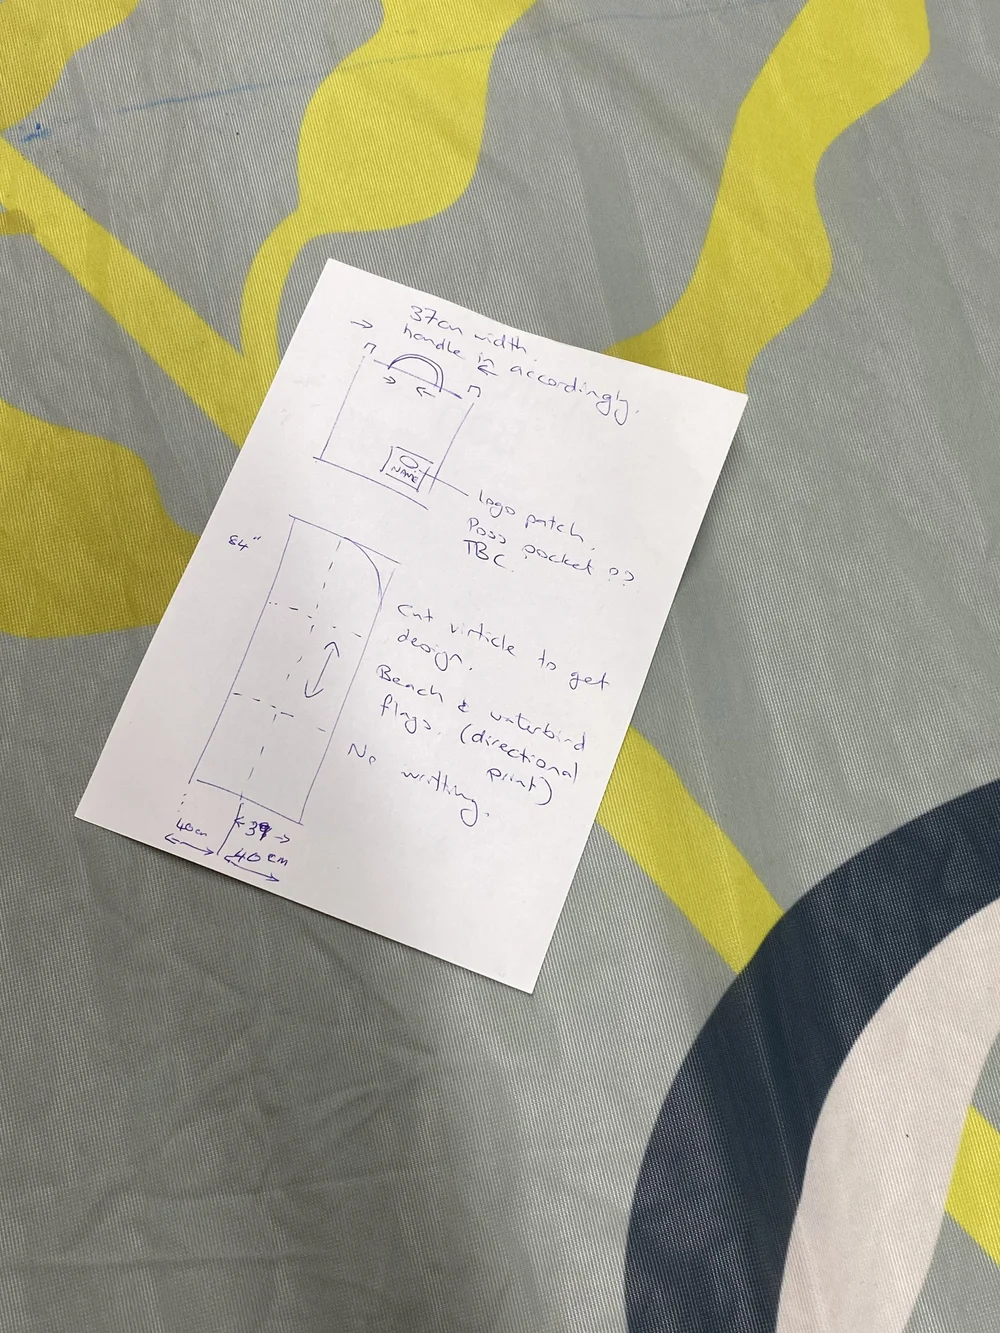 37cm width.
handle in accordingly.
NAME
Logo patch.
Poss pocket ??
TBC.
84"
Cut virticle to get
design.
Beach & waterbird
flags. (directional
print)
No writting.
40cm
39
40cm